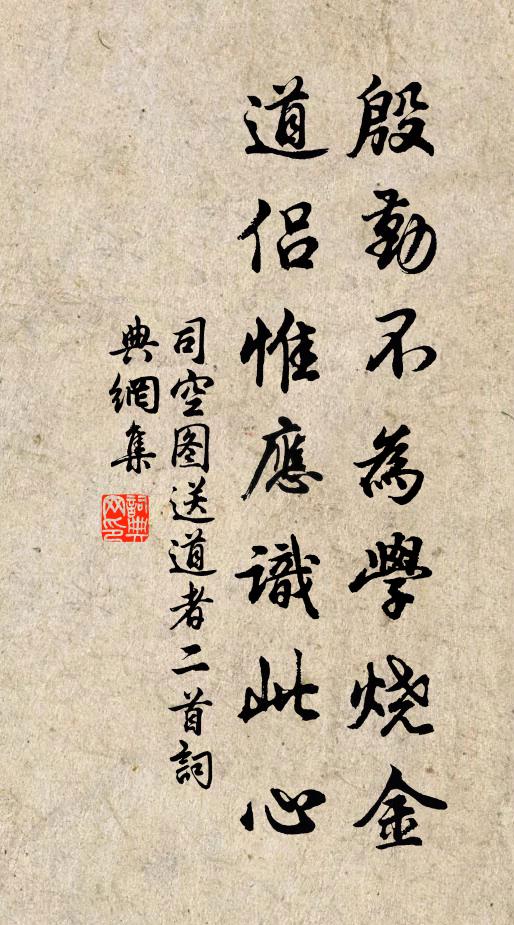 殷勤不為學烧金
道侣惟應識此心
司空图送道者二首詞
典網集
詞典
网印